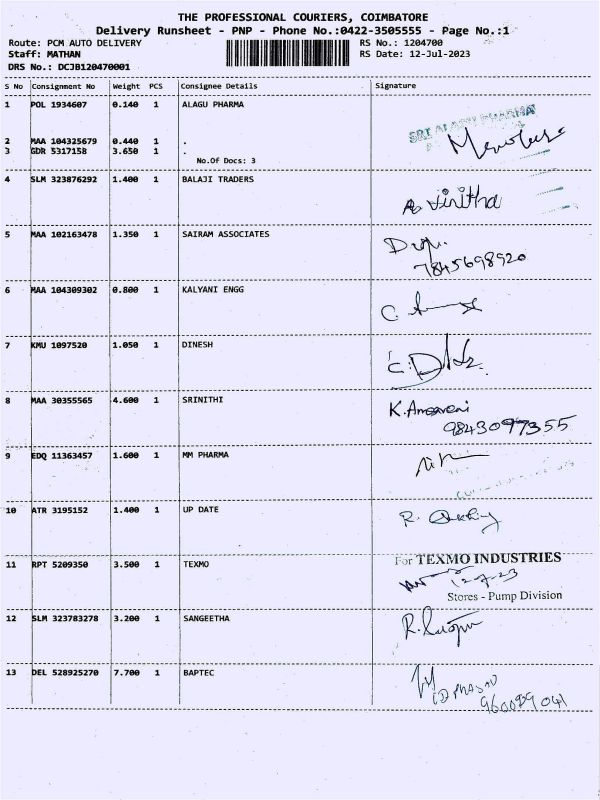 THE PROFESSIONAL COURIERS, COIMBATORE
Delivery Runsheet - PNP - Phone No.:0422-3505555 - Page No.:1
Route: PCM AUTO DELIVERY RS No.: 1204700
Staff: MATHAN RS Date: 12-Jul-2023
DRS No.: DCJB120470001
S No Consignment No Weight PCS Consignee Details Signature
1 POL 1934607 0.140 1 ALAGU PHARMA
SRI ALAGU PHARMA
2 MAA 104325679 0.440 1 .
3 GDR 5317158 3.650 1 .
No.Of Docs: 3
4 SLM 323876292 1.400 1 BALAJI TRADERS
5 MAA 102163478 1.350 1 SAIRAM ASSOCIATES
7845698920
6 MAA 104309302 0.800 1 KALYANI ENGG
7 KMU 1097520 1.050 1 DINESH
8 MAA 30355565 4.600 1 SRINITHI
9843097355
9 EDQ 11363457 1.600 1 MM PHARMA
10 ATR 3195152 1.400 1 UP DATE
For TEXMO INDUSTRIES
11 RPT 5209350 3.500 1 TEXMO
12-7-23
Stores - Pump Division
12 SLM 323783278 3.200 1 SANGEETHA
13 DEL 528925270 7.700 1 BAPTEC